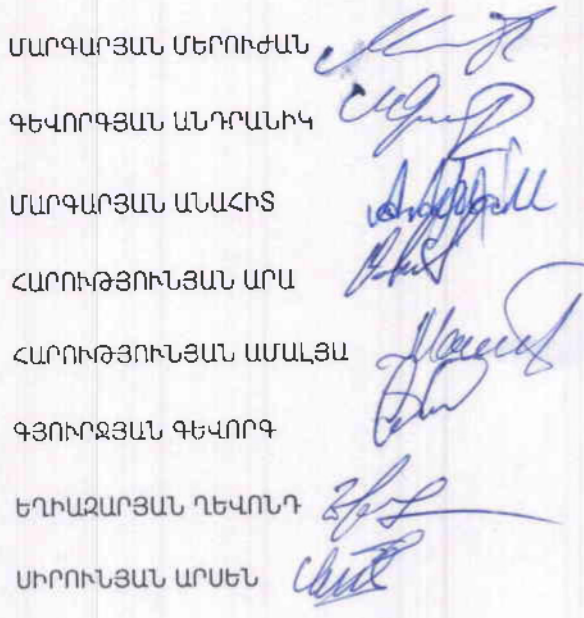 ՄԱՐԳԱՐՅԱՆ ՄԵՐՈՒԺԱՆ
ԳԵՎՈՐԳՅԱՆ ԱՆԴՐԱՆԻԿ
ՄԱՐԳԱՐՅԱՆ ԱՆԱՀԻՏ
ՀԱՐՈՒԹՅՈՒՆՅԱՆ ԱՐԱ
ՀԱՐՈՒԹՅՈՒՆՅԱՆ ԱՄԱԼՅԱ
ԳՅՈՒՐՋՅԱՆ ԳԵՎՈՐԳ
ԵՂԻԱԶԱՐՅԱՆ ՂԵՎՈՆԴ
ՍԻՐՈՒՆՅԱՆ ԱՐՍԵՆ